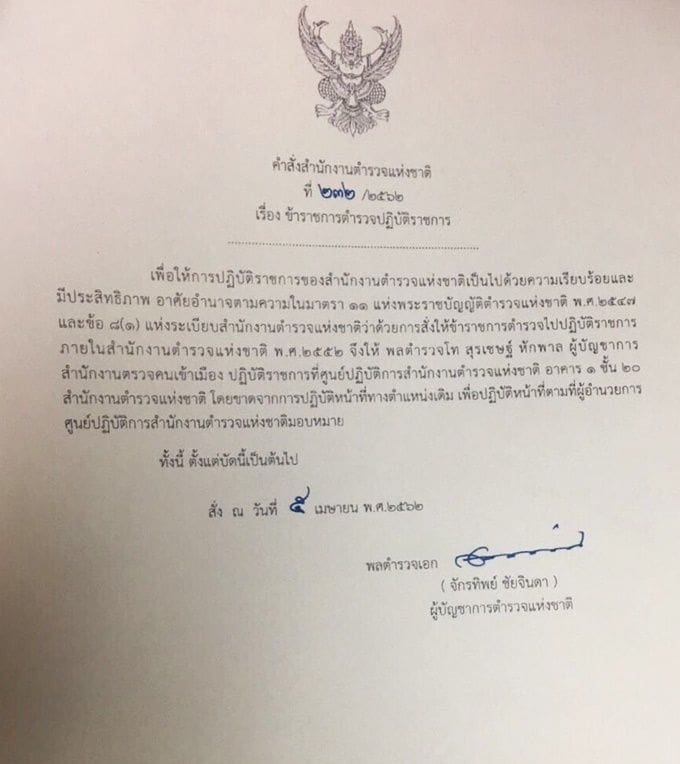 คำสั่งสำนักงานตำรวจแห่งชาติ
ที่ ๒๓๒ /๒๕๖๒
เรื่อง ข้าราชการตำรวจปฏิบัติราชการ
เพื่อให้การปฏิบัติราชการของสำนักงานตำรวจแห่งชาติเป็นไปด้วยความเรียบร้อยและ
มีประสิทธิภาพ อาศัยอำนาจตามความในมาตรา ๑๑ แห่งพระราชบัญญัติตำรวจแห่งชาติ พ.ศ.๒๕๔๗
และข้อ ๘(๑) แห่งระเบียบสำนักงานตำรวจแห่งชาติว่าด้วยการสั่งให้ข้าราชการตำรวจไปปฏิบัติราชการ
ภายในสำนักงานตำรวจแห่งชาติ พ.ศ.๒๕๕๒ จึงให้ พลตำรวจโท สุรเชษฐ์ หักพาล ผู้บัญชาการ
สำนักงานตรวจคนเข้าเมือง ปฏิบัติราชการที่ศูนย์ปฏิบัติการสำนักงานตำรวจแห่งชาติ อาคาร ๑ ชั้น ๒๐
สำนักงานตำรวจแห่งชาติ โดยขาดจากการปฏิบัติหน้าที่ทางตำแหน่งเดิม เพื่อปฏิบัติหน้าที่ตามที่ผู้อำนวยการ
ศูนย์ปฏิบัติการสำนักงานตำรวจแห่งชาติมอบหมาย
ทั้งนี้ ตั้งแต่บัดนี้เป็นต้นไป
สั่ง ณ วันที่ ๕ เมษายน พ.ศ.๒๕๖๒
พลตำรวจเอก
( จักรทิพย์ ชัยจินดา )
ผู้บัญชาการตำรวจแห่งชาติ